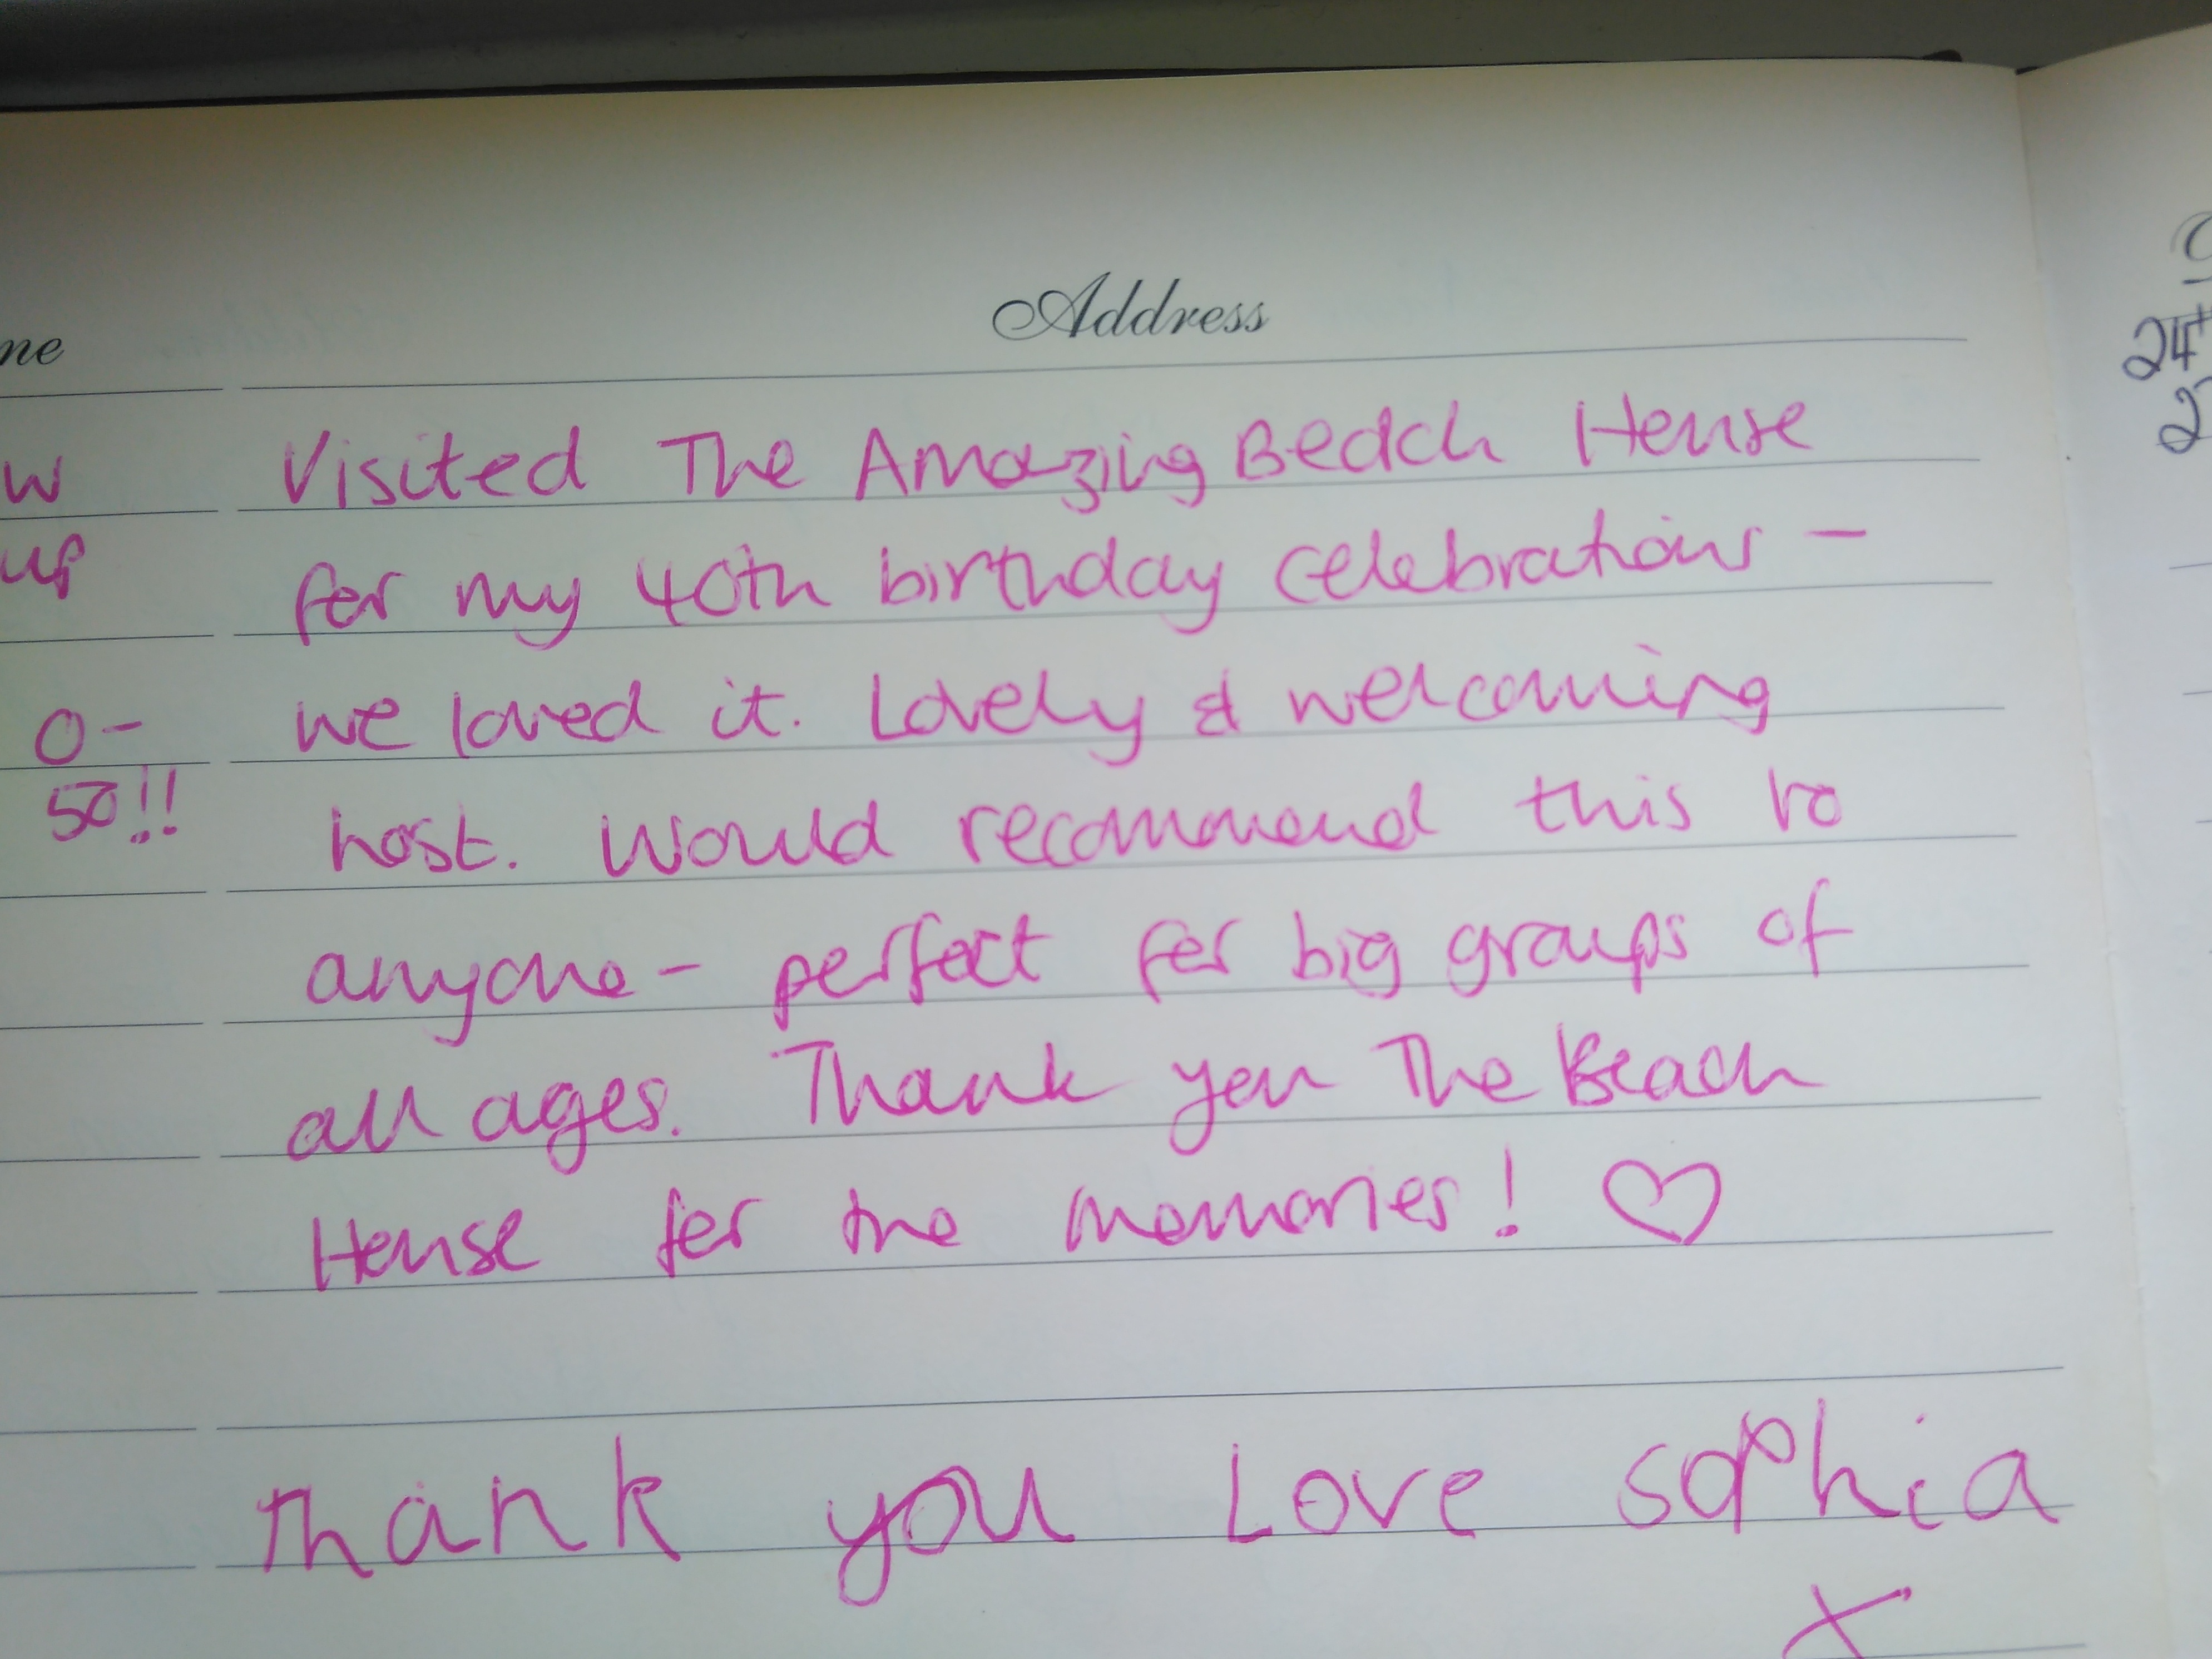 Address
ne
w Visited The Amazing Beach House
up for my 40th birthday celebrations -
0- we loved it. Lovely & welcoming
50!! host. Would recommend this to
anyone - perfect for big groups of
all ages. Thank you The Beach
House for the memories! ♡
Thank you Love Sophia
x
24
2